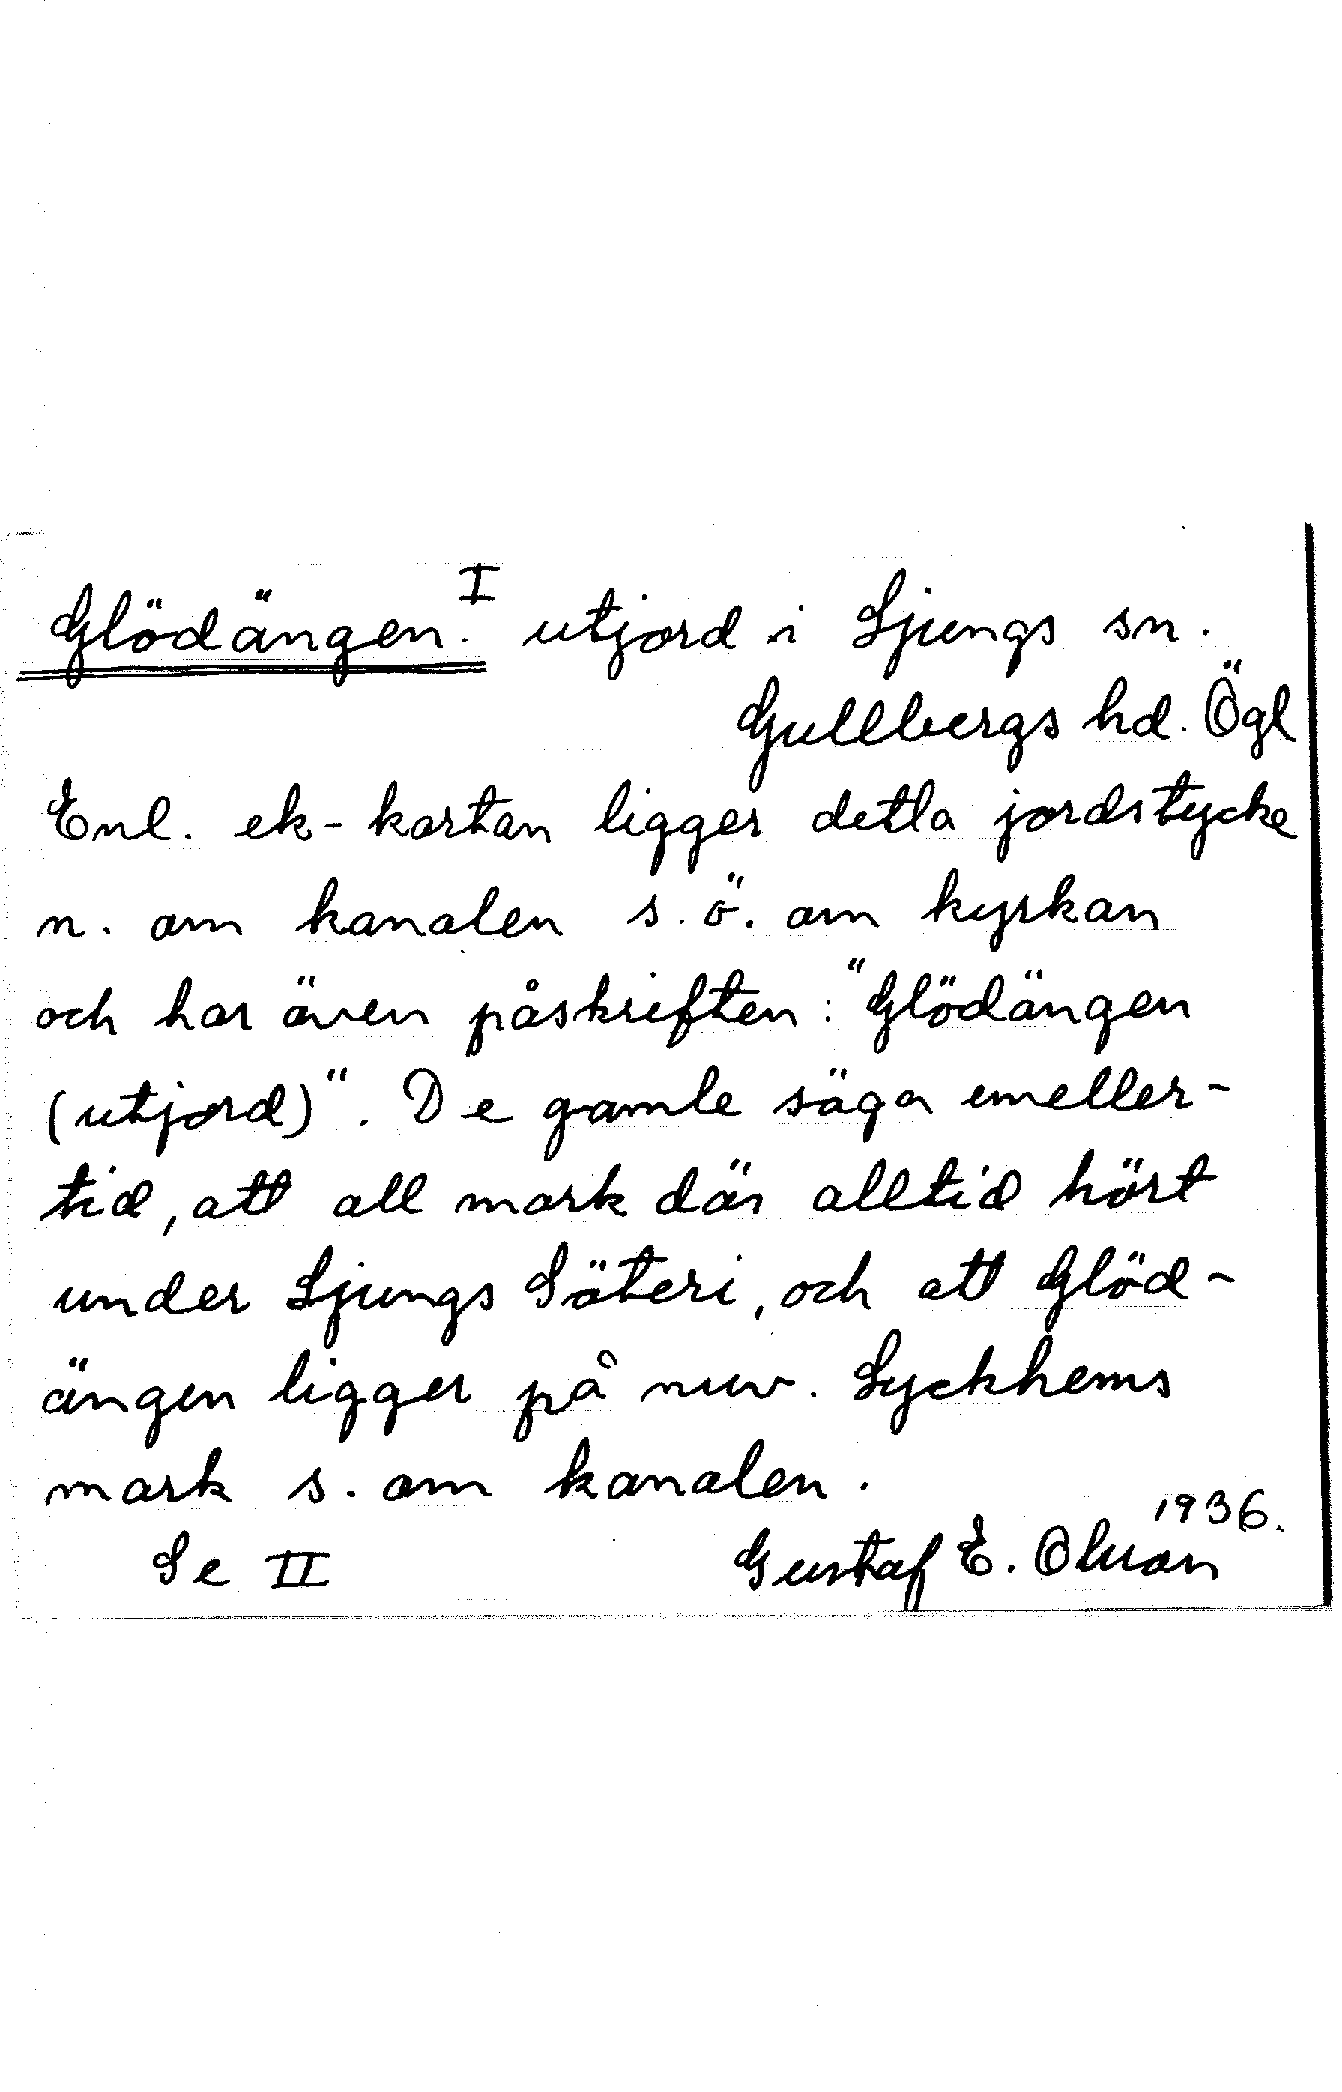 Glödängen. I utjord i Ljungs sn.
Gullbergs hd. Ögl
Enl. ek-kartan ligger detta jordstycke
n. om kanalen s.ö. om kyrkan
och har även påskriften: "Glödängen
(utjord)". De gamle säga emeller-
tid, att all mark där alltid hört
under Ljungs Säteri, och att Glöd-
ängen ligger på nuv. Lyckhems
mark s. om kanalen.
1936.
Se II Gustaf E. Olsson